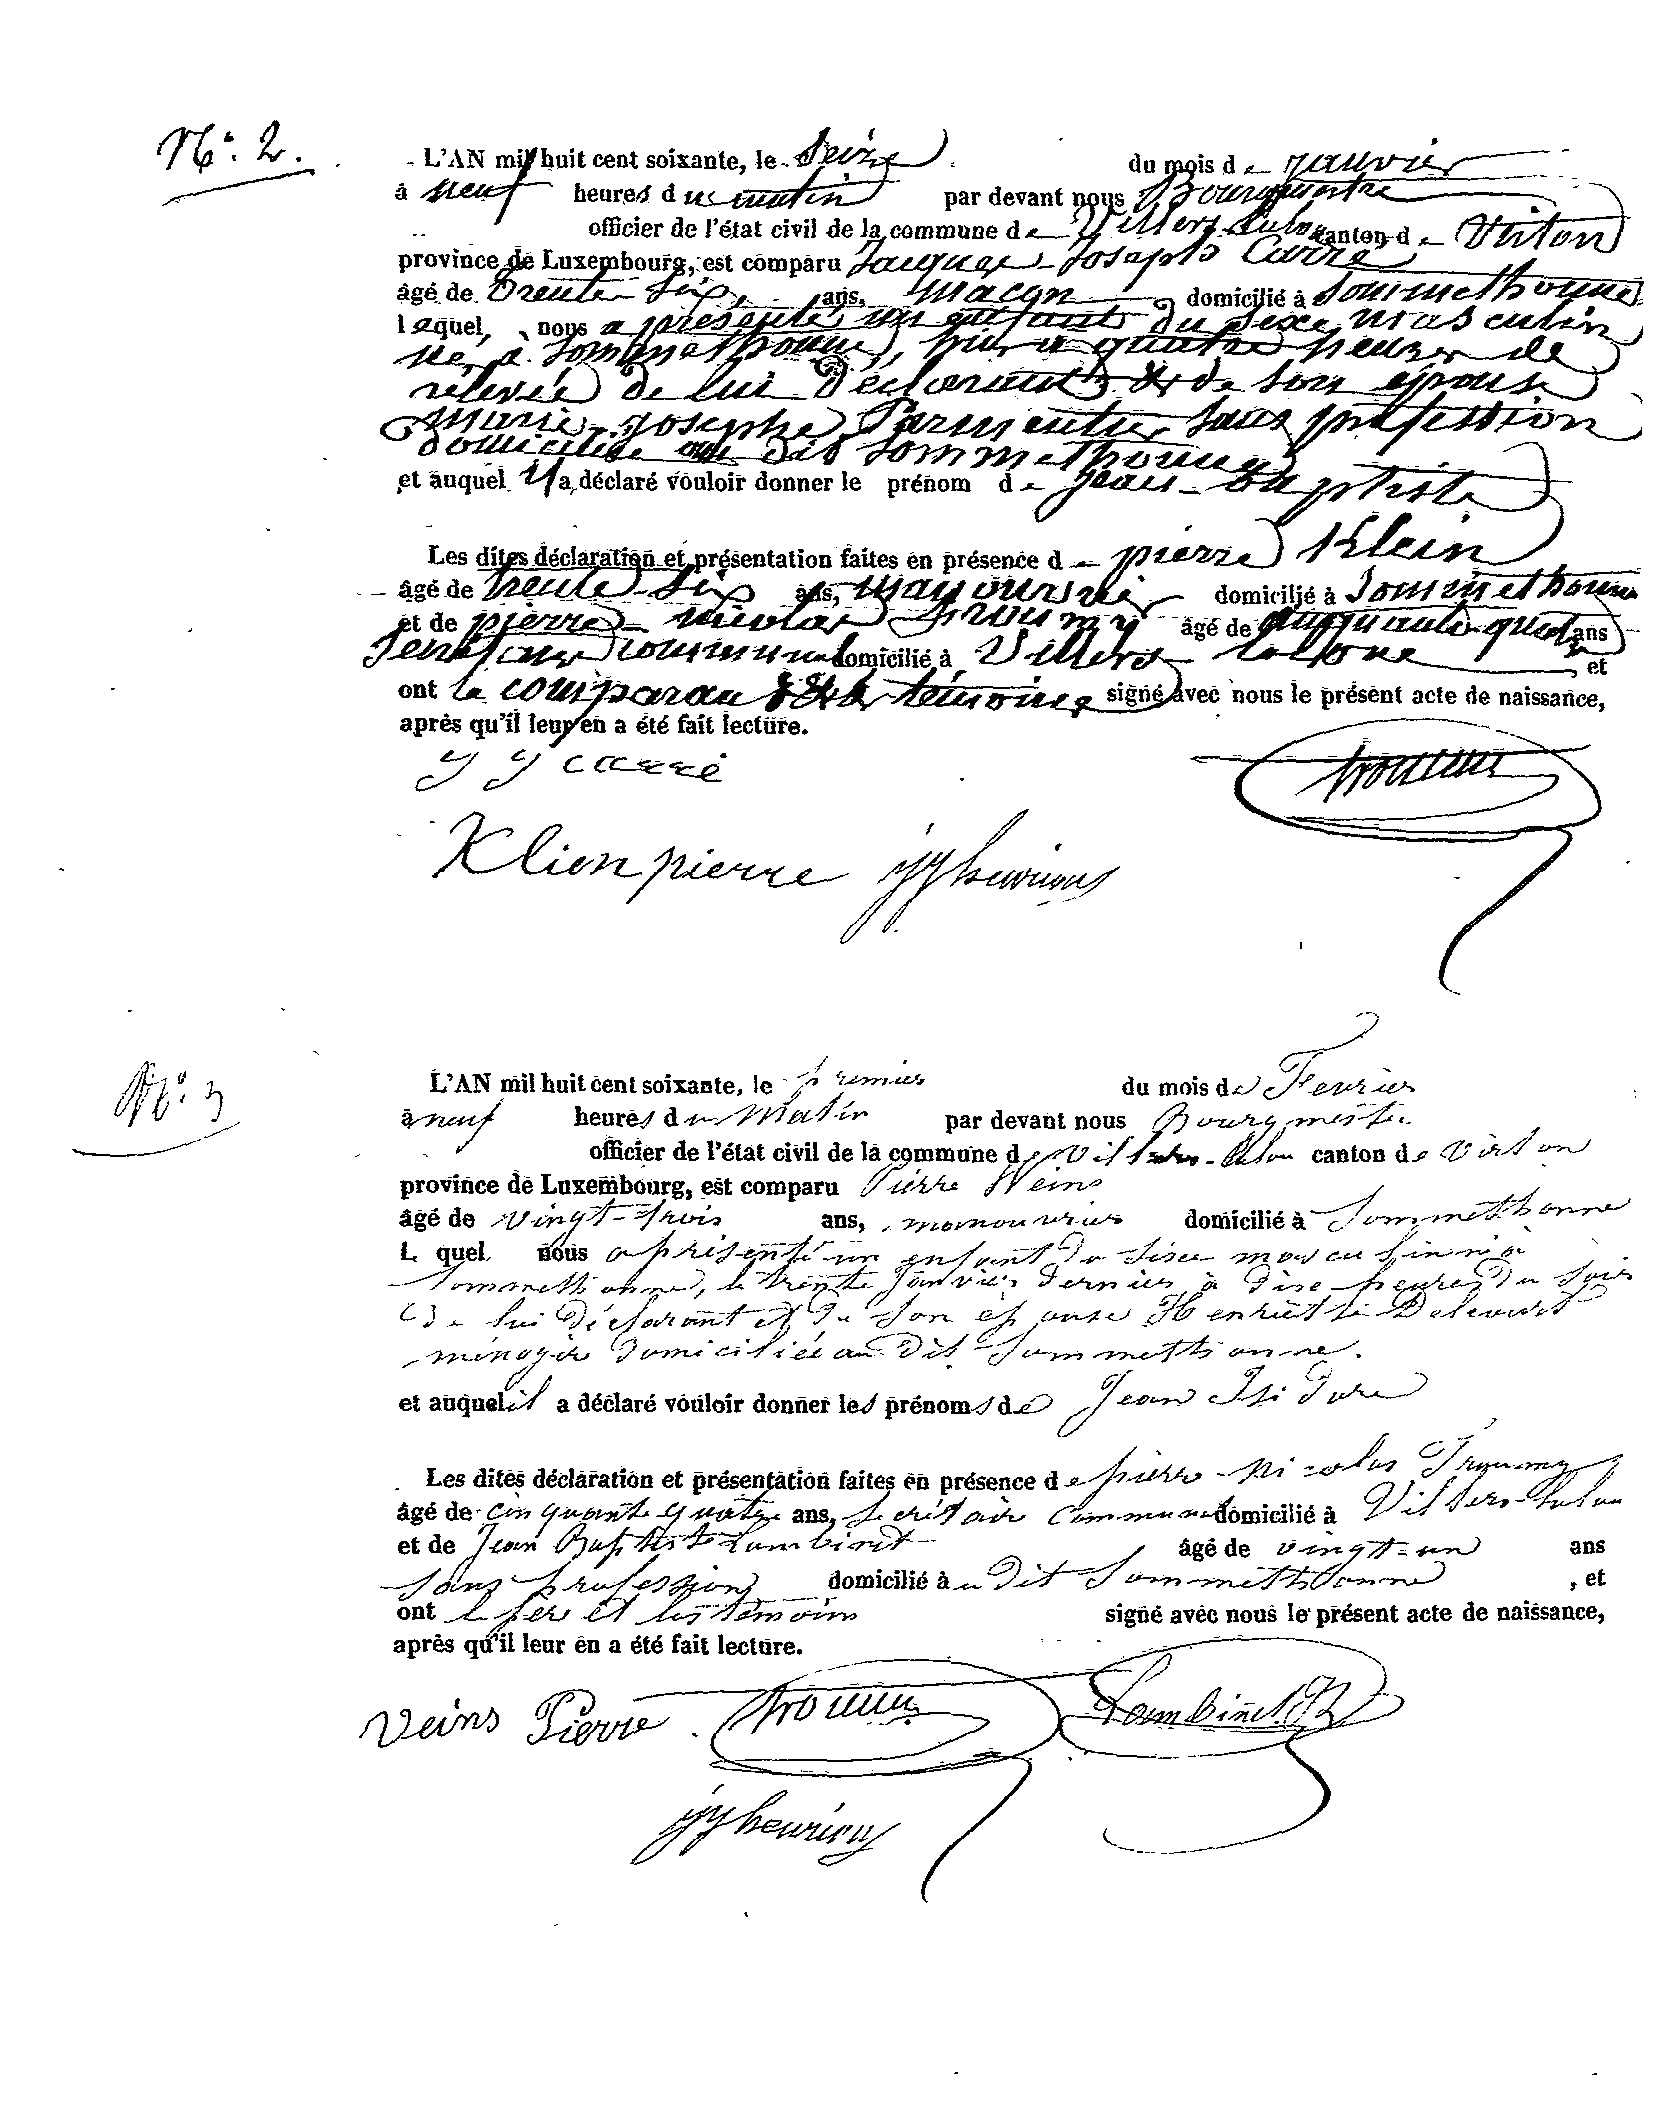 N°. 2.
L'AN mil huit cent soixante, le Seize du mois de janvier
à neuf heures du matin par devant nous Bourgmestre
officier de l'état civil de la commune de Villers-laloue canton de Virton
province de Luxembourg, est comparu Jacques-Joseph Carré
âgé de trente-six, ans, maçon domicilié à Sommethonne
lequel, nous a présenté un enfant du sexe masculin
né, à Sommethonne, hier à quatre heures de
relevée de lui déclarant & de son épouse
Marie-josephe Parmentier sans profession
domiciliée au dit Sommethonne
et auquel il a déclaré vouloir donner le prénom de Jean-Baptiste
Les dites déclaration et présentation faites en présence de pierre Klein
âgé de trente-six ans, manouvrier domicilié à Sommethonne
et de pierre-nicolas Troumy âgé de cinquante-quatre ans
Secrétaire communal domicilié à Villers-laloue et
ont le comparant & les témoins signé avec nous le présent acte de naissance,
après qu'il leur en a été fait lecture.
J J carré
Klien pierre
N°. 3
L'AN mil huit cent soixante, le premier du mois de Fevrier
à neuf heures du Matin par devant nous Bourgmestre
officier de l'état civil de la commune de Villers-laloue canton de Virton
province de Luxembourg, est comparu Pierre Weins
âgé de vingt-trois ans, manouvrier domicilié à Sommethonne
L quel nous a présenté un enfant du sexe masculin né à
Sommethonne, le trente Janvier dernier, à dix heures du soir
de lui déclarant et de son epouse Henriette
ménagère domiciliée au dit Sommethonne.
et auquel il a déclaré vouloir donner les prénoms de Jean Isidore
Les dites déclaration et présentation faites en présence de pierre-Nicolas Troumy
âgé de cinquante quatre ans, secrétaire communal domicilié à Villers-laloue
et de Jean Baptiste Lambinet âgé de vingt-un ans
sans profession domicilié à u dit Sommethonne , et
ont le père et les témoins signé avec nous le présent acte de naissance,
après qu'il leur en a été fait lecture.
Veins Pierre Lambinet JB